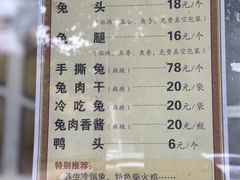 兔 头 18元/个
(麻辣、五香、鱼香、免费真空包装)
兔 腿 16元/个
(麻辣、五香、鱼香、免费真空包装)
手撕兔(麻辣) 78元/个
兔肉干(麻辣) 20元/袋
冷吃兔(麻辣) 20元/袋
兔肉香酱(麻辣) 20元/瓶
鸭 头 6元/个
特别推荐:
冷锅兔、特色柴火鸡